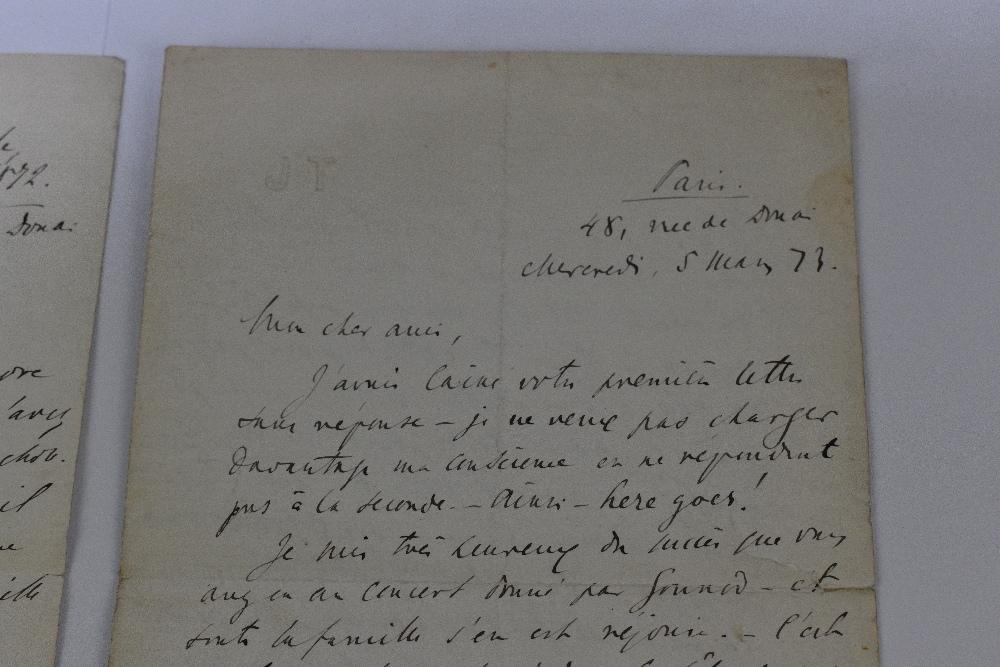 872.
Douai
ore
'avez
chos.
il
ille
JT
Paris.
48, rue de Douai
Mercredi, 5 Mars 73.
Mon cher ami,
J'avais laissé votre première lettre
sans réponse – je ne veux pas charger
davantage ma conscience en ne répondant
pas à la seconde. – Ainsi – here goes!
Je suis très heureux du succès que vous
avez eu au concert donné par Gounod – et
toute la famille s'en est réjouie. – C'est